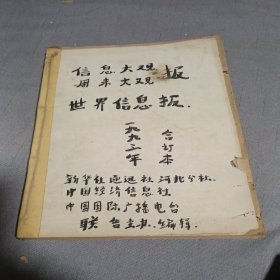 信息大观报
周末大观
世界信息报.
一九九三年
合订本
新华社通讯社河北分社.
中国经济信息社
中国国际广播电台
联合主办.编辑.